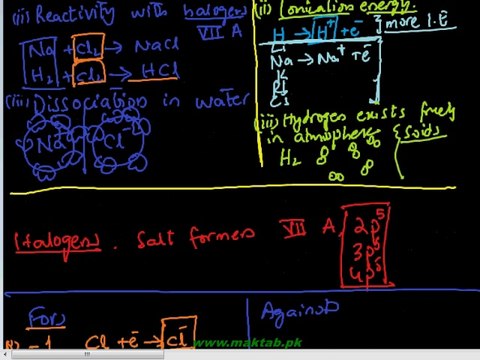 (ii) Reactivity with halogens
VII A
Na + Cl2 → NaCl
H2 + Cl2 → HCl
(iii) Dissociation in water
Na+ Cl-
(ii) Ionization energy.
H → H+ + e-
more I.E
Na → Na+ + e-
(iii) Hydrogen exists freely
in atmosphere
H2
Solids
Halogens. Salt formers VII A
2p5
3p5
4p5
For
Against
Cl + e- → Cl-
www.maktab.pk